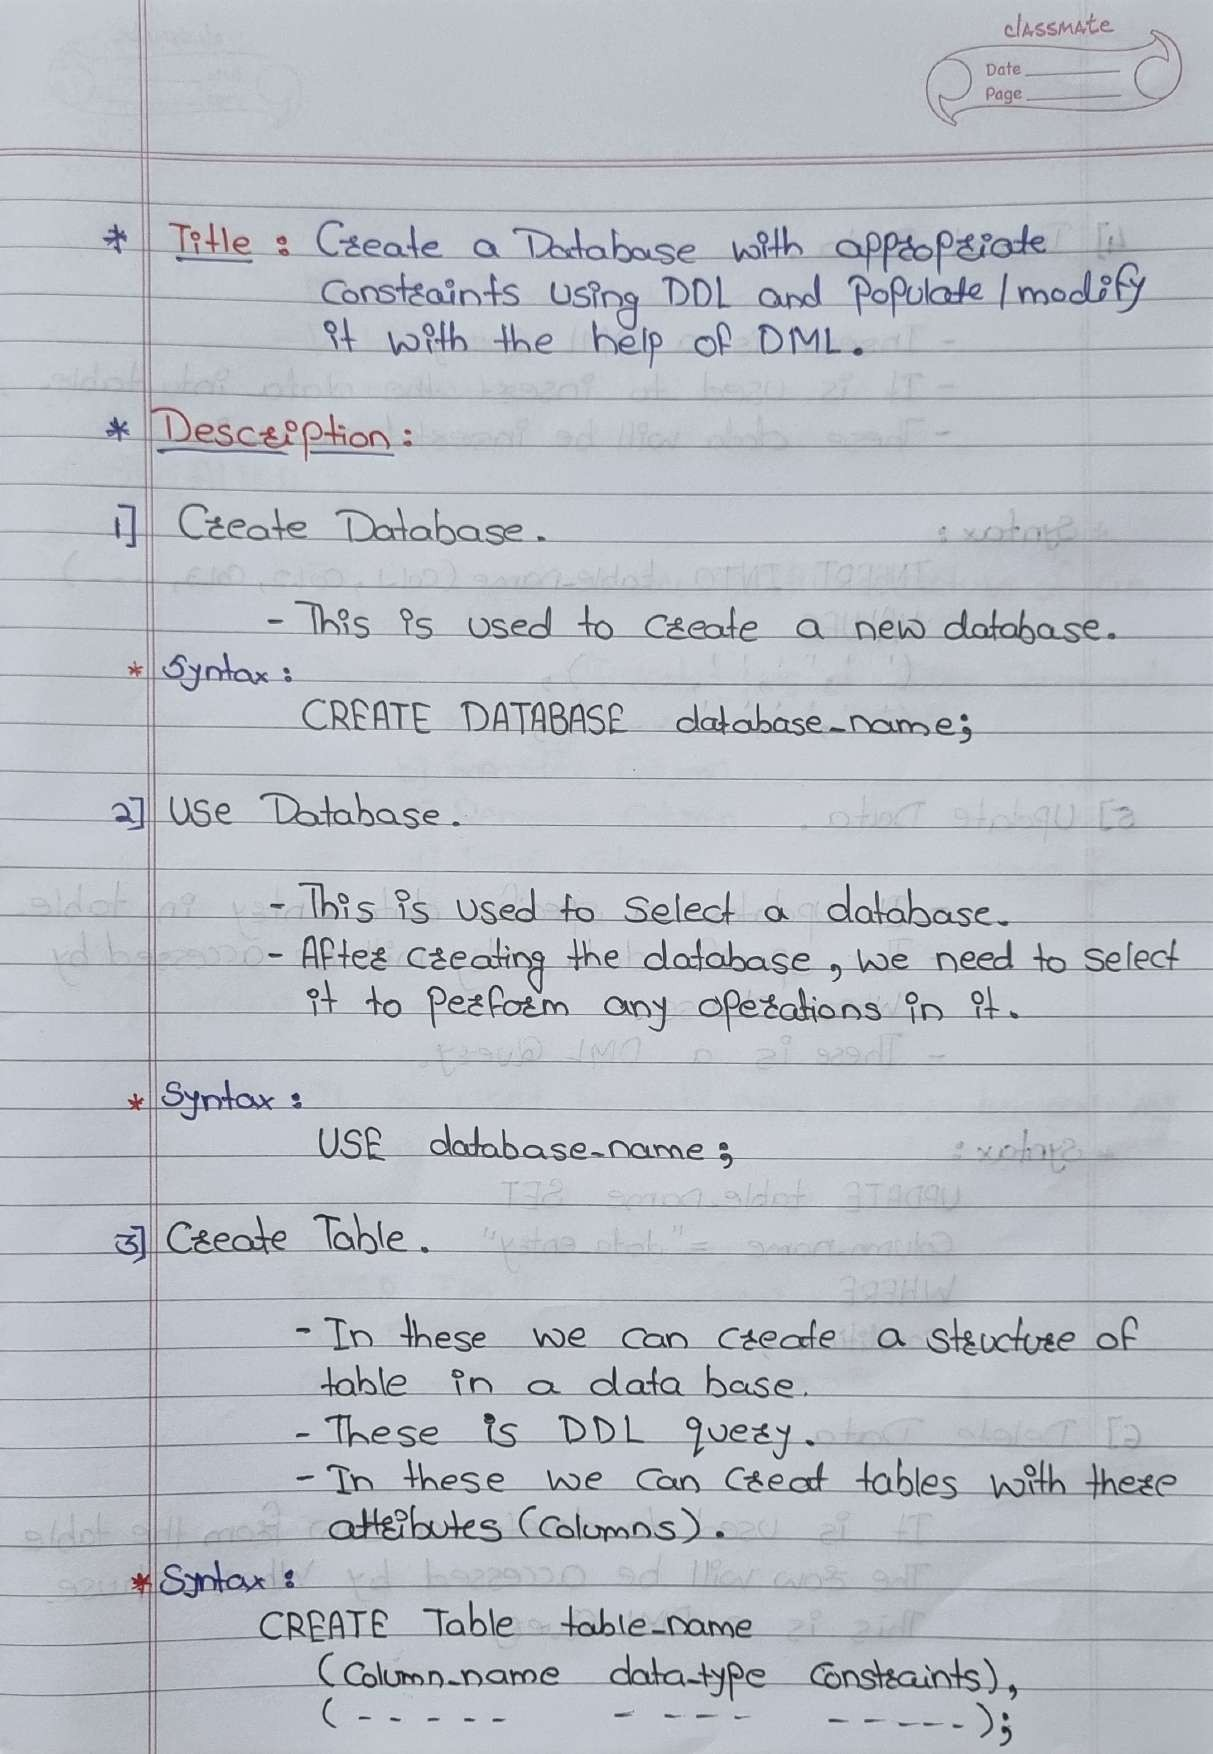 classmate
Date
Page
* Title : Create a Database with appropriate
Constraints using DDL and Populate / modify
it with the help of DML.
* Description :
1] Create Database.
- This is used to create a new database.
* Syntax :
CREATE DATABASE database_name;
2] Use Database.
- This is used to select a database.
- After creating the database, we need to select
it to perform any operations in it.
* Syntax :
USE database_name;
3] Create Table.
- In these we can create a structure of
table in a data base.
- These is DDL query.
- In these we can creat tables with there
attributes (columns).
* Syntax :
CREATE Table table_name
(Column_name data_type constraints),
(- - - - - - - - - - - - - -);